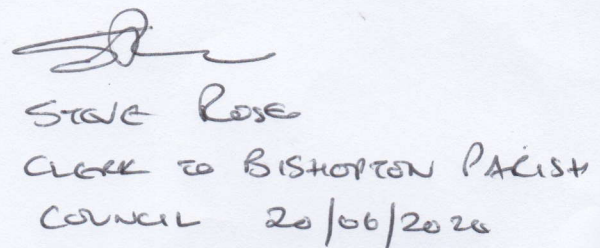 STEVE ROSE
CLERK TO BISHOPTON PARISH
COUNCIL 20/06/2020